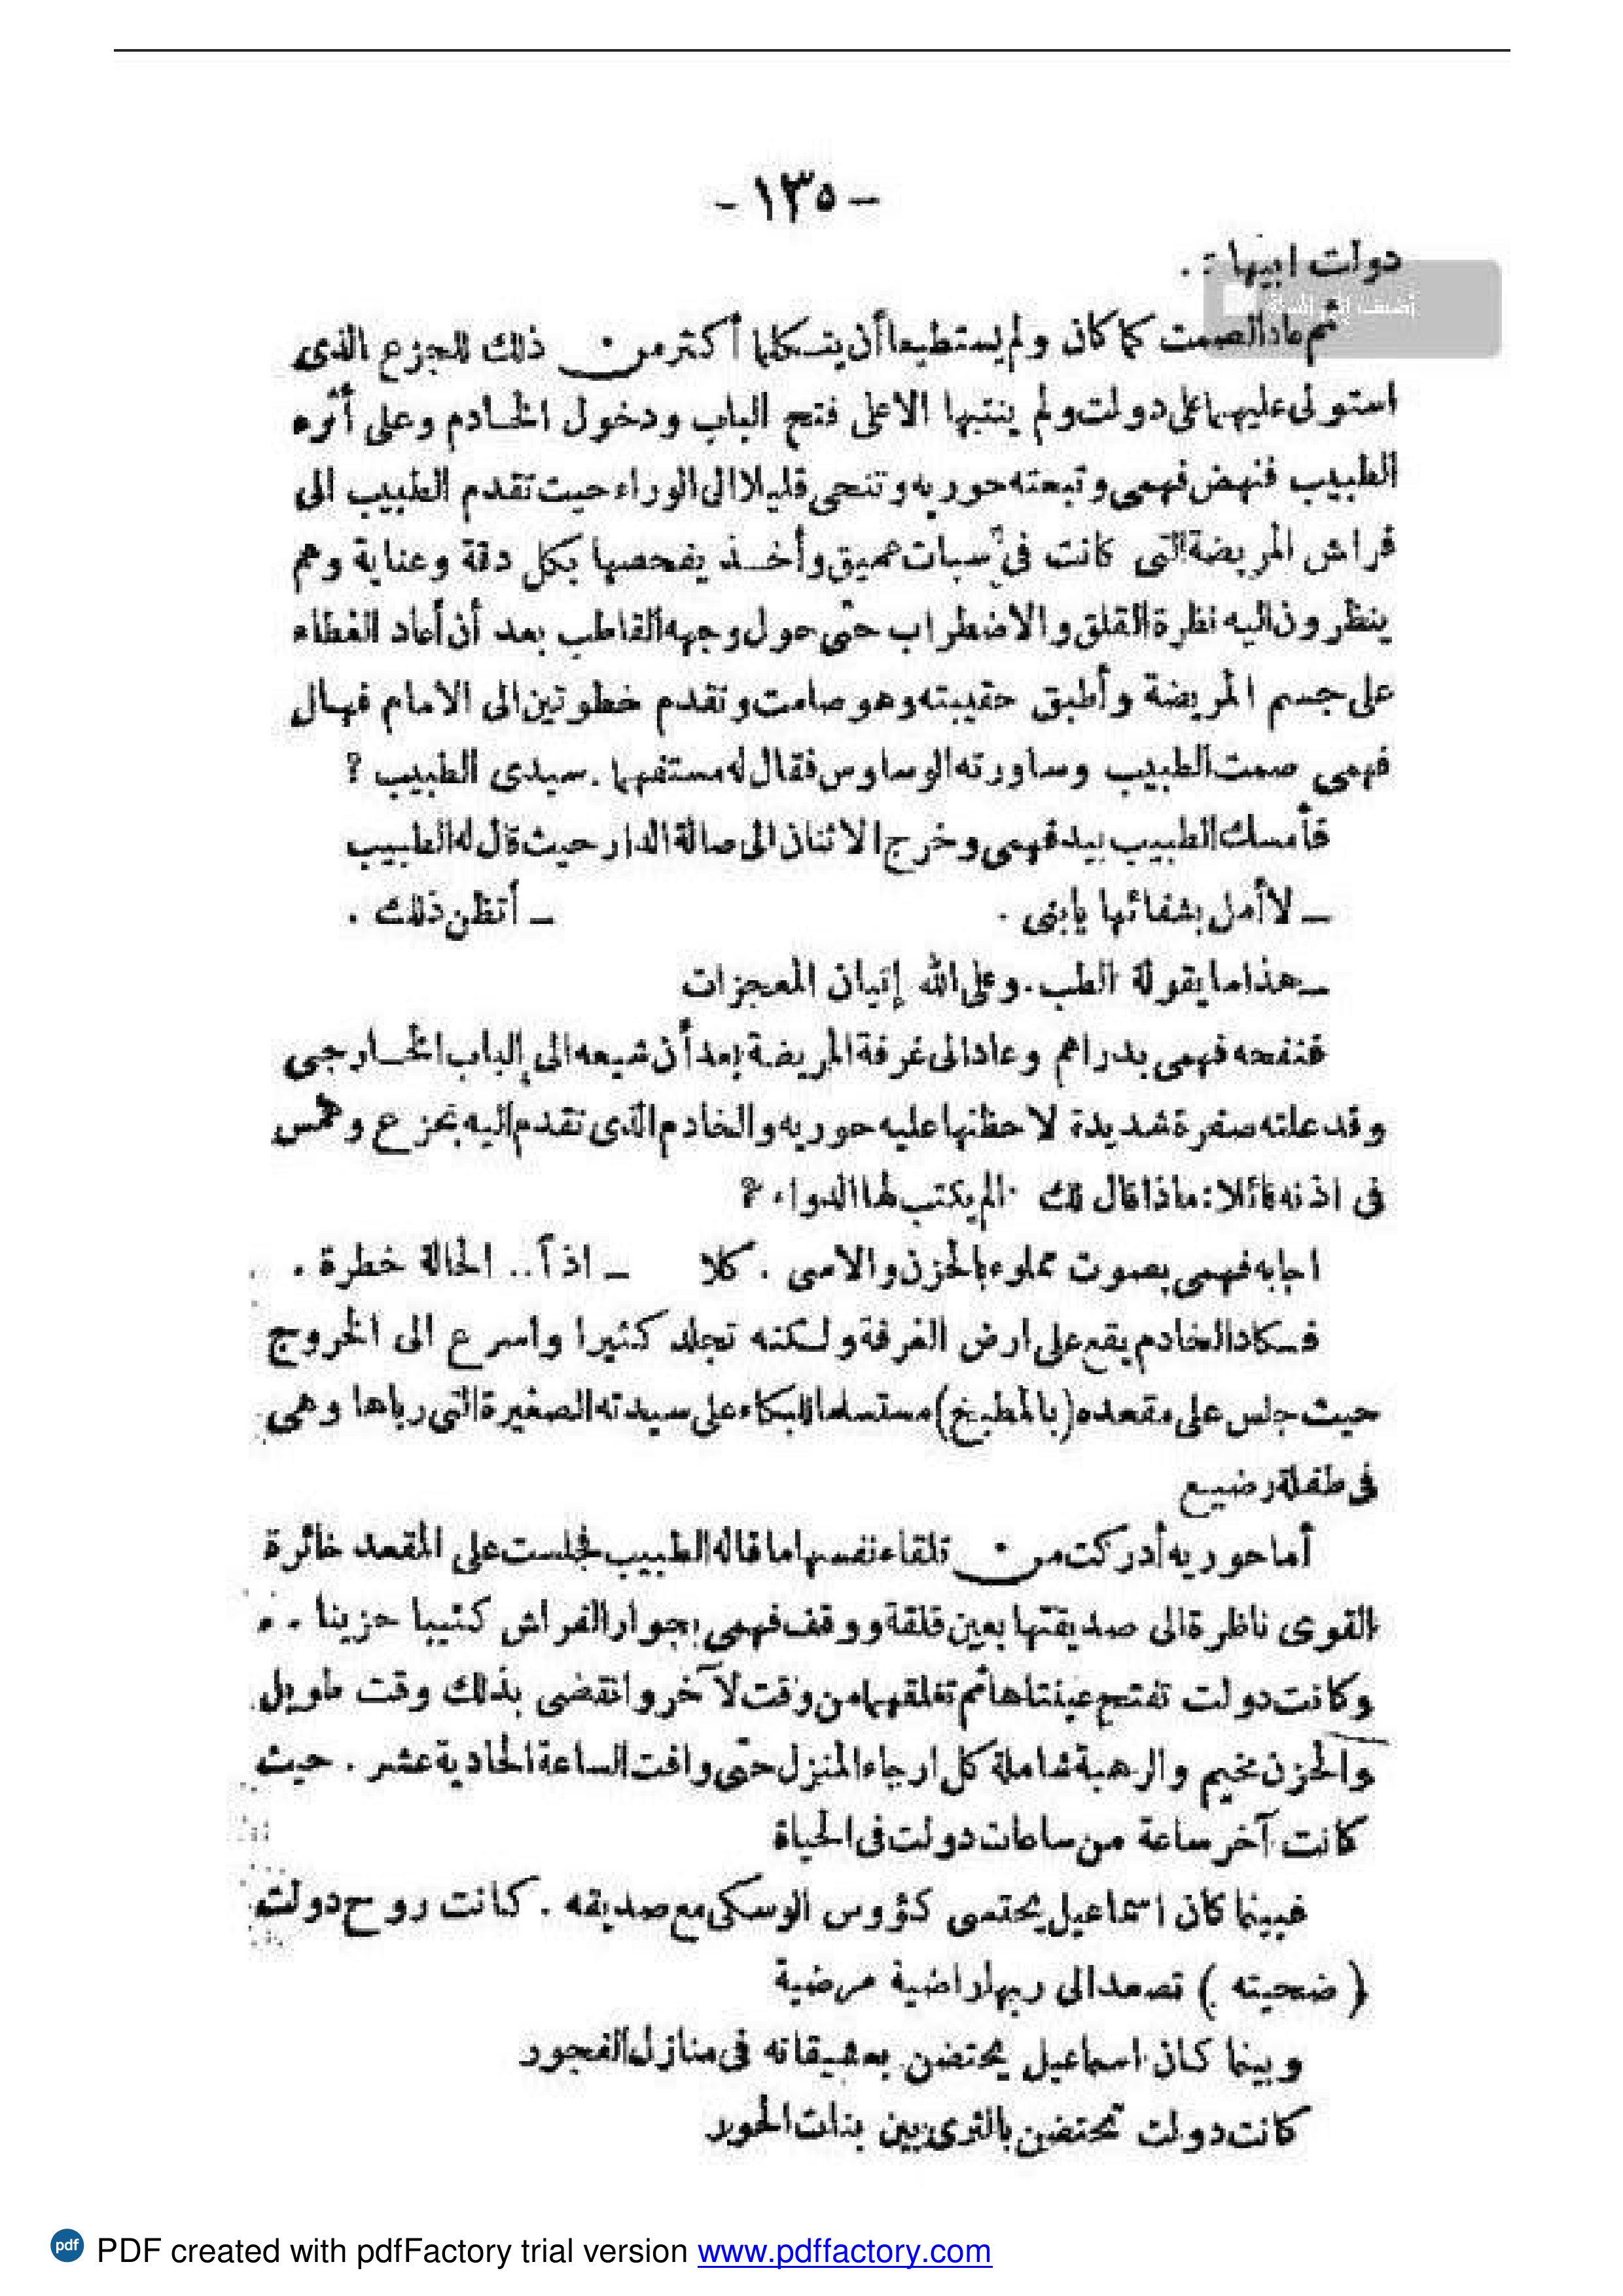 - ١٣٥ -
دولت ابيها : .
ثم عاد الصمت كما كان ولم يستطيعا أن يتكلما أكثر من ذلك للجزع الذى
استولى عليهما على دولت ولم ينتبها الا على فتح الباب ودخول الخادم وعلى أثره
الطبيب فنهض فهمى وتبعته حوريه وتنحى قليلا الى الوراء حيت تقدم الطبيب الى
فراش المريضة التى كانت فى سبات عميق وأخذ يفحصها بكل دقة وعناية وهم
ينظرون اليه نظرة القلق والاضطراب حتى حول وجهه القاطب بعد أن أعاد الغطاء
على جسم المريضة وأطبق حقيبته وهو صامت وتقدم خطوتين الى الامام فهال
فهمى صمت الطبيب وساورته الوساوس فقال له مستفهما . سيدى الطبيب ؟
فأمسك الطبيب بيد فهمى وخرج الاثنان الى صالة الدار حيث قال له الطبيب
ــ لا أمل بشفائها يابنى . ــ أتظن ذلك .
ــ هذا ما يقولة الطب . وعلى الله إتيان المعجزات
فنفحه فهمى بدراهم وعاد الى غرفة المريضة بعد أن شيعه الى الباب الخارجى
وقد علته صفرة شديدة لاحظتها عليه حوريه والخادم الذى تقدم اليه بجزع وهمس
فى اذنه قائلا : ماذا قال لك . الم يكتب لها الدواء ؟
اجابه فهمى بصوت مملوء بالحزن والاسى . كلا ــ اذاً .. الحالة خطرة .
فكاد الخادم يقع على ارض الغرفة ولكنه تجلد كثيرا واسرع الى الخروج
حيث جلس على مقعده (بالمطبخ) مستسلما للبكاء على سيدته الصغيرة التى رباها وهى
فى طفلة رضيع
أما حوريه أدركت من تلقاء نفسها ما قاله الطبيب فجلست على المقعد خائرة
القوى ناظرة الى صديقتها بعين قلقة ووقف فهمى بجوار الفراش كئيبا حزينا . .
وكانت دولت تفتح عينتاها ثم تغلقهما من وقت لآخر وانقضى بذلك وقت طويل
والحزن مخيم والرهبة شاملة كل ارجاء المنزل حتى وافت الساعة الحادية عشر . حيث
كانت آخر ساعة من ساعات دولت فى الحياة
فبينما كان اسماعيل يحتسى كؤوس الوسكى مع صديقه . كانت روح دولت
( ضحيته ) تصعد الى ربها راضية مرضية
وبينما كان اسماعيل يحتضن بعشيقاته فى منازل الفجور
كانت دولت تحتضن بالثرى بين بنات الحور
PDF created with pdfFactory trial version www.pdffactory.com